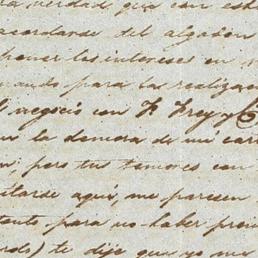 verdad que con est
acordarse del algodon
poner los intereses en
cuando para las realizacio
negocio con F. Frey y C
la demora de mi carr
; pero tus temores con
tarde aquí, me parecen
tanto para no haber prev
) te dije que yo me